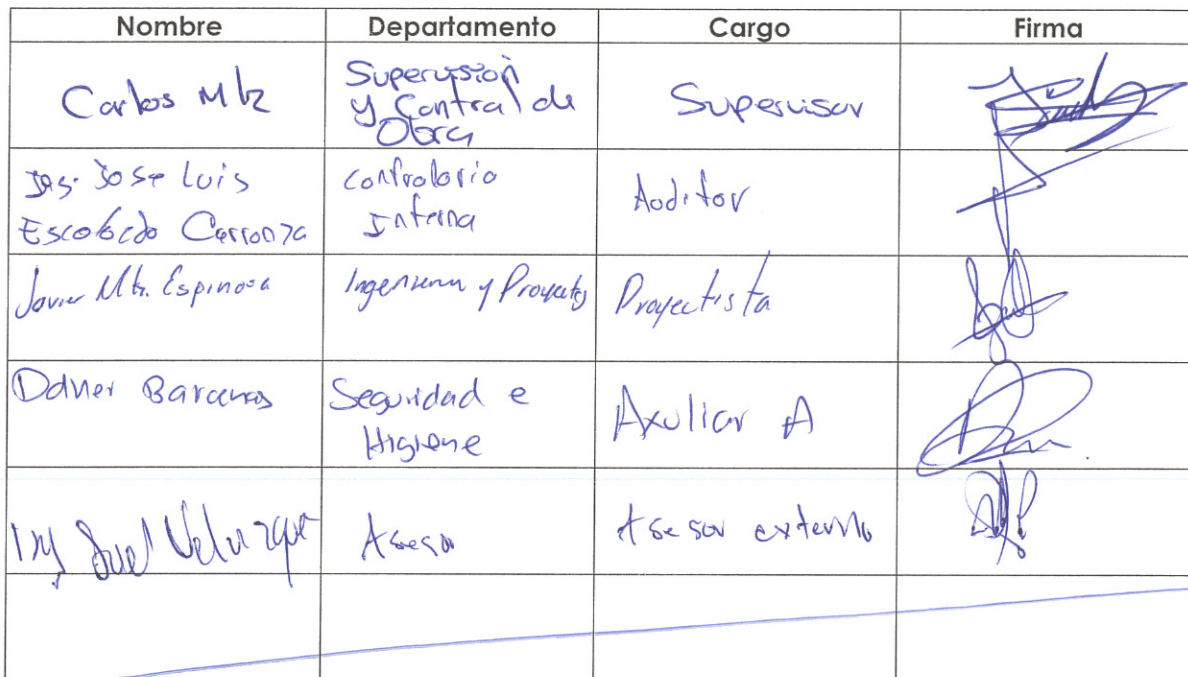 Nombre Departamento Cargo Firma
Carlos Mtz Supervisión y Control de Obra Supervisor
Ing. Jose Luis Escobedo Carranza Contraloria Interna Auditor
Javier Mtz. Espinosa Ingenieria y Proyectos Proyectista
Barcenas Seguridad e Higiene Axuliar A
Ing Asesor Asesor externo